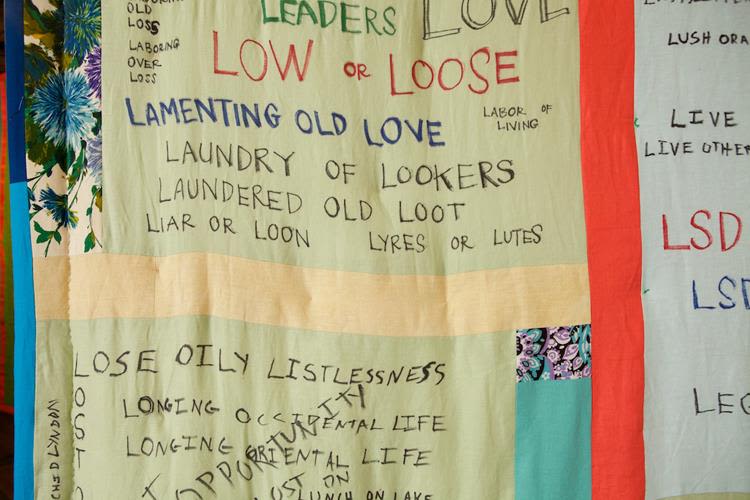 OLD
LOSS
LABORING
OVER
LOSS
LEADERS
LOVE
LOW OR LOOSE
LAMENTING OLD LOVE
LABOR OF
LIVING
LAUNDRY OF LOOKERS
LAUNDERED OLD LOOT
LIAR OR LOON
LYRES OR LUTES
LOSE OILY LISTLESSNESS
LONGING OCCIDENTAL LIFE
LONGING ORIENTAL LIFE
OPPORTUNITY
LOST
LUNCH ON LAKE
ON
LYNDON
LUSH ORA
LIVE
LIVE OTHE
LSD
LSD
LEG